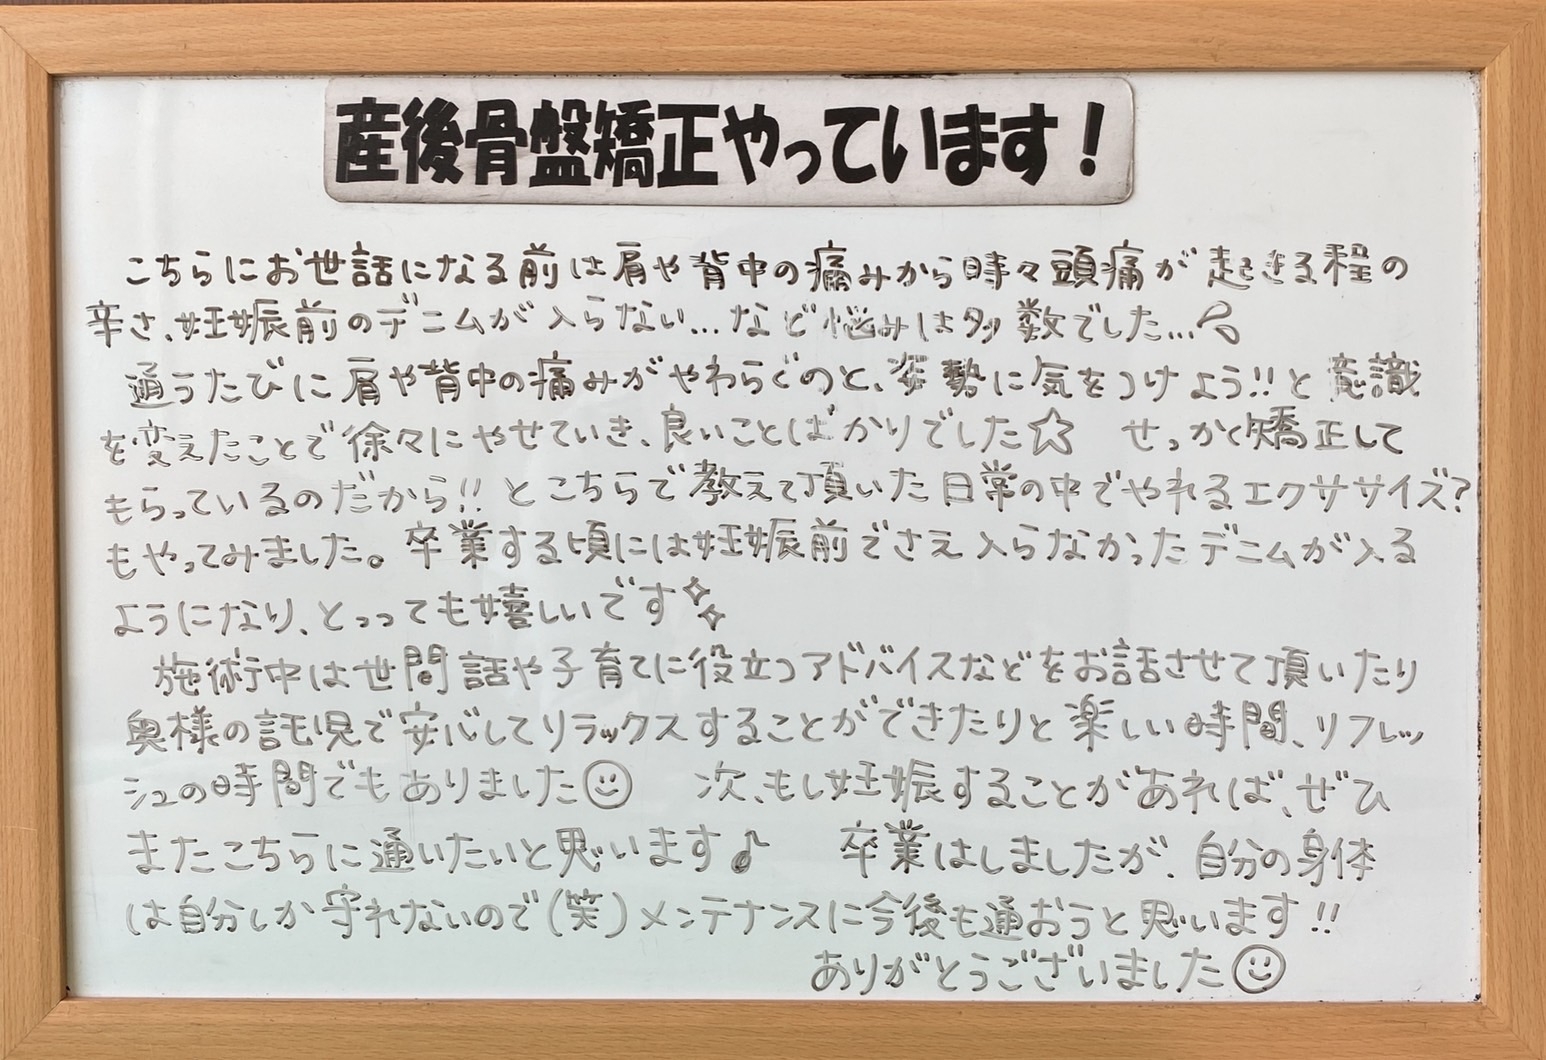 産後骨盤矯正やっています！
こちらにお世話になる前は肩や背中の痛みから時々頭痛が起きる程の
辛さ、妊娠前のデニムが入らない...など悩みは多数でした...
通うたびに肩や背中の痛みがやわらぐのと、姿勢に気をつけよう!!と意識
を変えたことで徐々にやせていき、良いことばかりでした☆ せっかく矯正して
もらっているのだから!!とこちらで教えて頂いた日常の中でやれるエクササイズ?
もやってみました。卒業する頃には妊娠前でさえ入らなかったデニムが入る
ようになり、とっっても嬉しいです✨
施術中は世間話や子育てに役立つアドバイスなどをお話させて頂いたり
奥様の託児で安心してリラックスすることができたりと楽しい時間、リフレッ
シュの時間でもありました☺ 次、もし妊娠することがあれば、ぜひ
またこちらに通いたいと思います♪ 卒業はしましたが、自分の身体
は自分しか守れないので(笑)メンテナンスに今後も通おうと思います!!
ありがとうございました☺